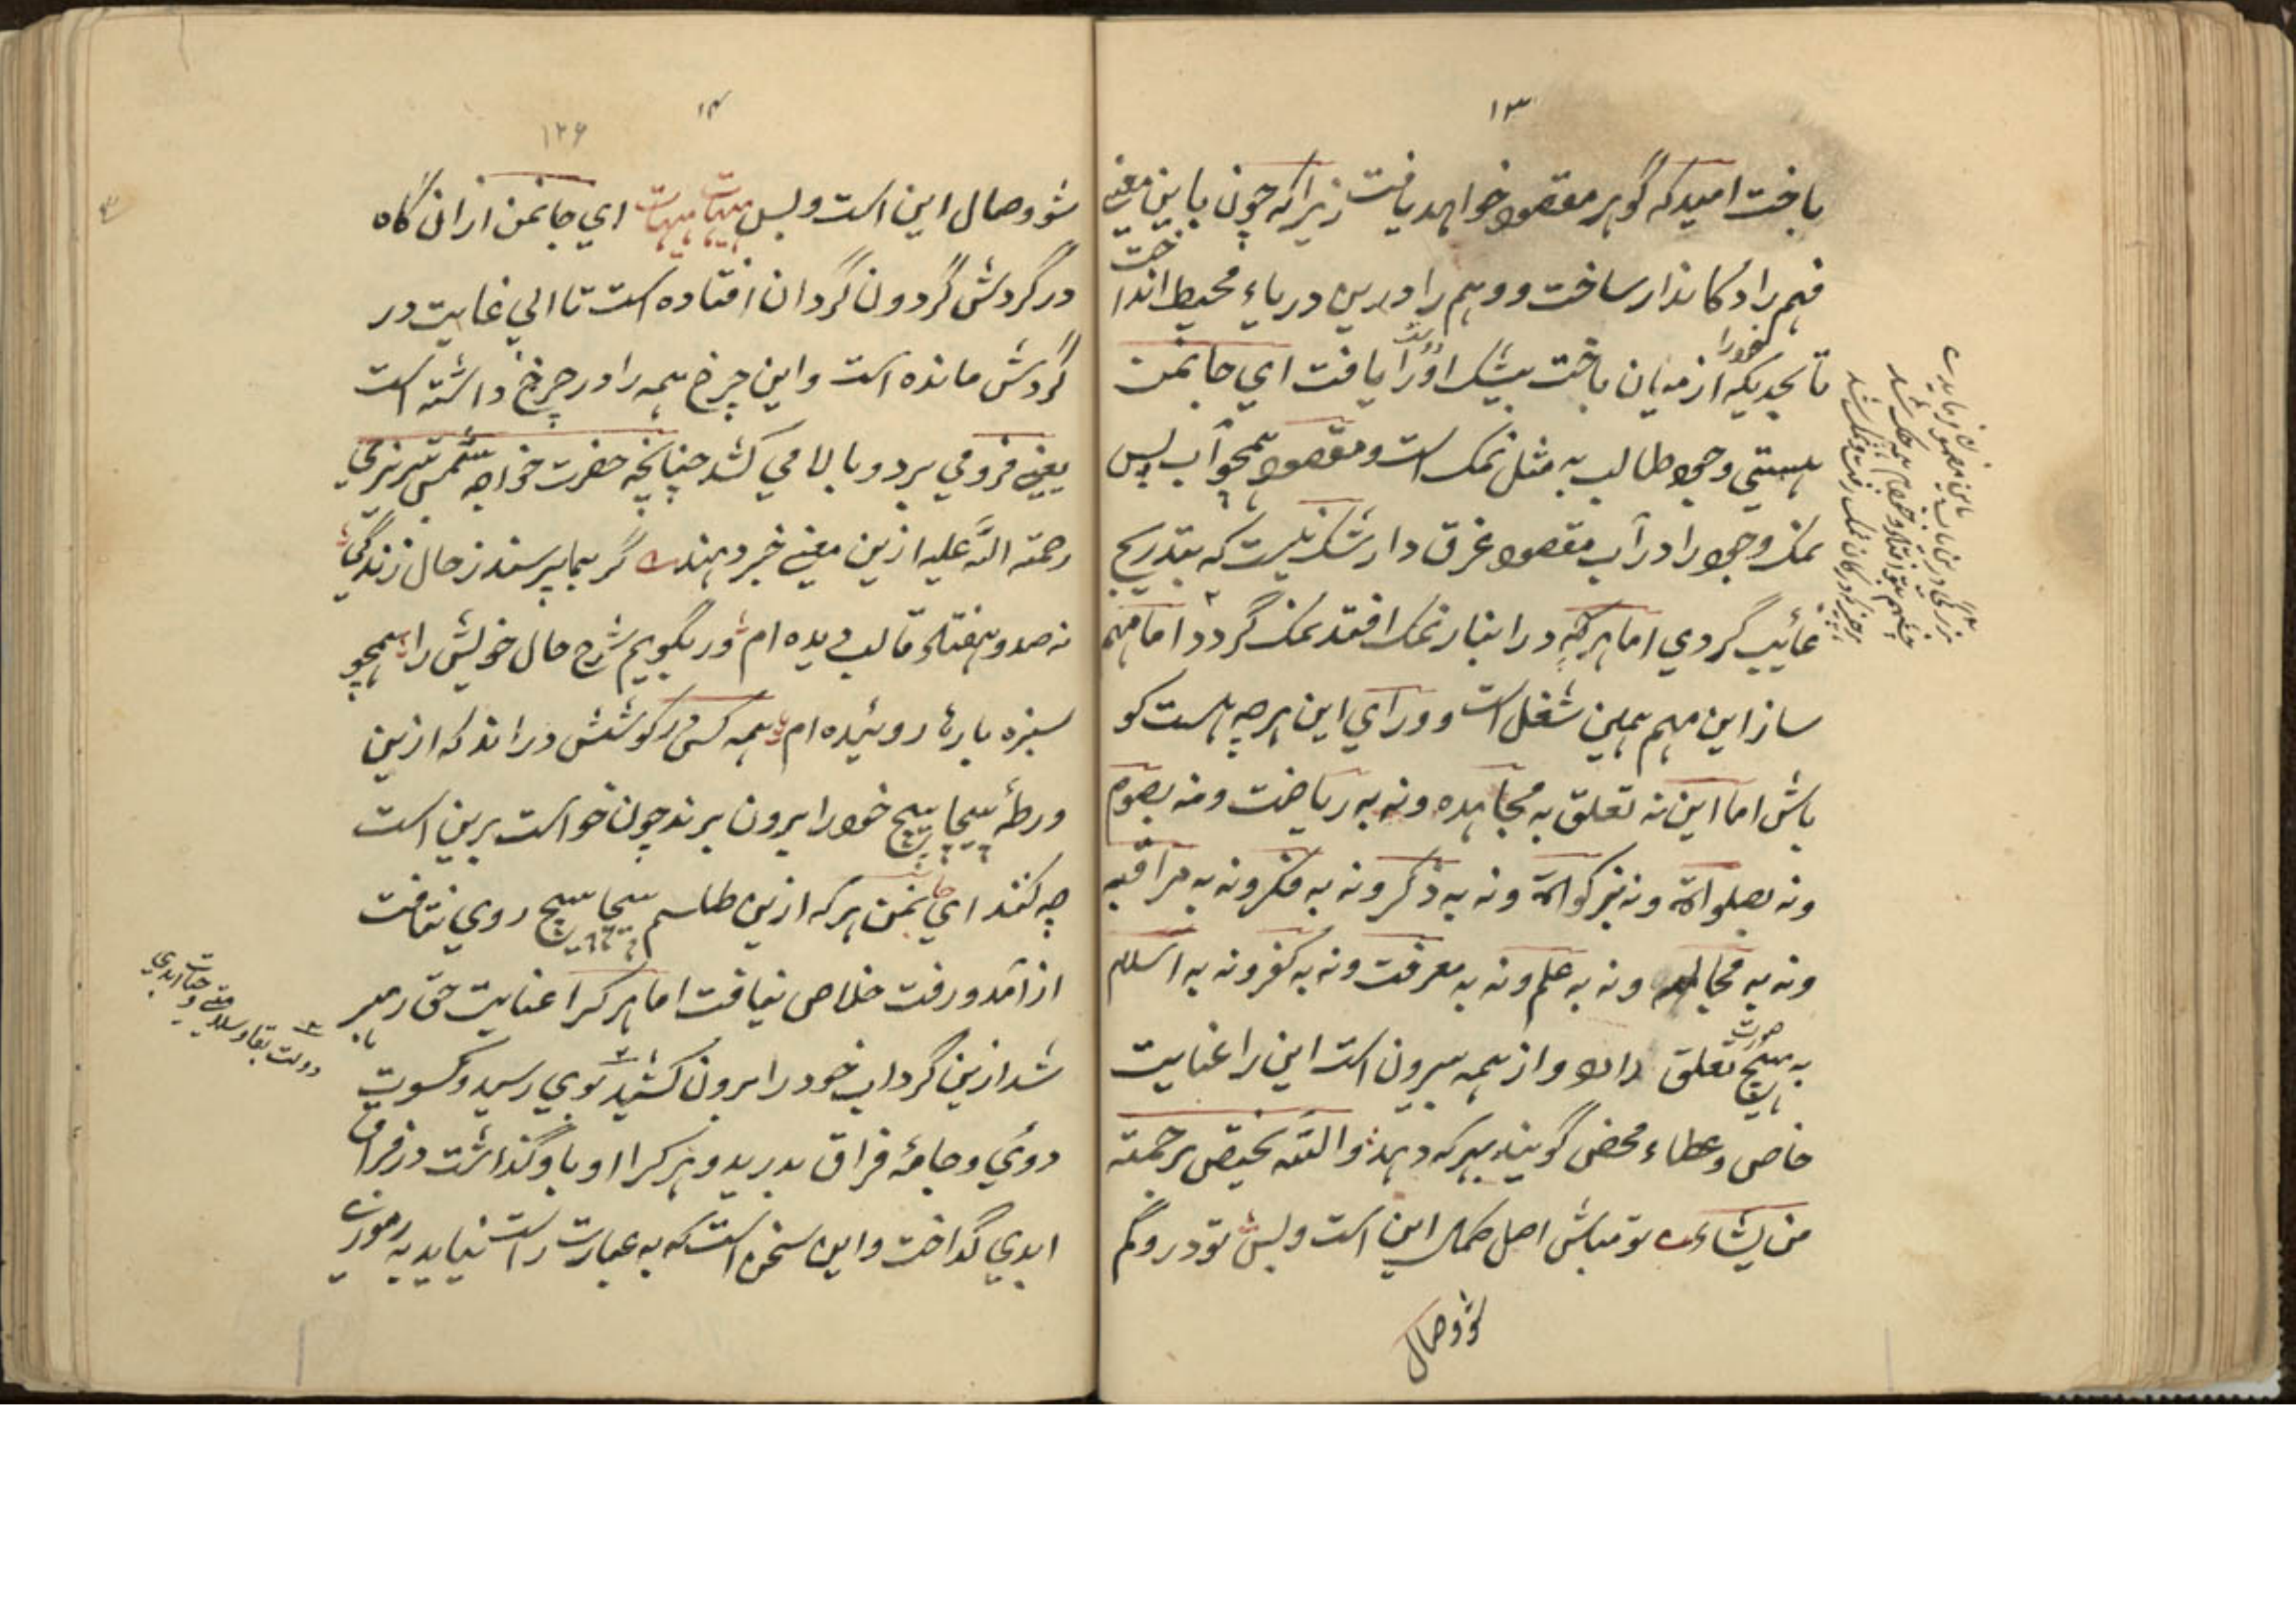 ۱۳
باخت امید که گوهر مقصود خواهد یافت زیرا که چون باین معنی
فهم را دکاندار ساخت و وهم را درین دریاء محیط انداخت
تا بحدیکه خود را از میان باخت بیشک او را یافت ای جانمن
هستی وجود طالب به مثل نمک است و مقصود همچو آب پس
نمک وجود را در آب مقصود غرق دار شک نیست که بتدریج
غائیب گردی اما هرکه در انبار نمک افتد نمک گردد اما مهم
ساز این مهم همین شغل است و ورای این هرچه هست گو
باش اما این نه تعلق به مجاهده و نه به ریاضت و نه بصوم
و نه بصلواة و نه بزکواة و نه به ذکر و نه به فکر و نه به مراقبه
و نه به و نه به علم و نه به معرفت و نه به کفر و نه به اسلام
به هیچ صورت تعلق دارد و از همه بیرون است این را عنایت
خاص و عطاء محض گویند بهر که دهد والله یختص برحمته
من یشاء تو مباش اصل کمال این است و بس تو درو گم
شو وصال
۱۴
۱۲۶
شو وصال این است و بس هیهات هیهات ای جانمن ازان گاه
در گردش گردون گردان افتاده است تا الی غایت در
گردش مانده است و این چرخ همه را در چرخ داشته است
یعنی فرو می برد و بالا می کشد چنانچه حضرت خواجه شمس تبریزی
رحمته الله علیه ازین معنی خبر دهند گر بما پرسند ز حال زندگی
نه صد و هفتاد قالب دیده ام ور بگویم شرح حال خویش را همچو
سبزه بارها روئیده ام همه کس در کوشش در اند که ازین
ورطهٔ پیچاپیچ خود را بیرون برند چون خواست برین است
چه کنند ای جانمن هر که ازین طلسم پیچاپیچ روی نتافت
از آمد و رفت خلاص نیافت اما هر کرا عنایت حق رهبر
شد ازین گرداب خود را بیرون کشید بوی رسید و کسوت
دوئی و جامهٔ فراق بدرید و هر کرا او باو گذاشت در فراق
ابدی گداخت و این سخن است که به عبارت راست نیاید به رموز
دولت بقا و سلامتی و حیات ابدی